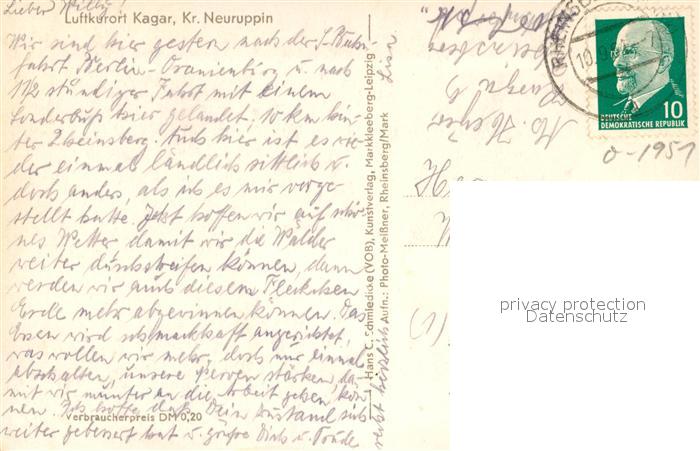 Lieber Willy!
Luftkurort Kagar, Kr. Neuruppin
Wir sind hier gestern nach der S-Bahn
fahrt Berlin-Oranienburg u. nach
1 1/2 stündiger Fahrt mit einem
Sonderbuß hier gelandet, 10 km hin-
ter Rheinsberg. Auch hier ist es wie
der einmal ländlich sittlich u.
doch anders, als ich es mir vorge-
stellt hatte. Jetzt hoffen wir auf schö-
nes Wetter damit wir die Wälder
weiter durchstreifen können, dann
werden wir auch diesem Fleckchen
Erde mehr abgewinnen können. Das
Essen wird schmackhaft angerichtet,
was wollen wir mehr, doch nur einmal
abschalten, unsere Nerven stärken, da-
mit wir munter an die Arbeit gehen kön
nen. Ich hoffe daß Dein Zustand sich
Verbraucherpreis DM 0,20
weiter gebessert hat u. grüße Dich u. Trude
recht herzlich
Lisa
Hans C. Schmiedicke (VOB), Kunstverlag, Markkleeberg-Leipzig
Aufn.: Photo-Meißner, Rheinsberg/Mark
RHEINSB
10
DEUTSCHE
DEMOKRATISCHE REPUBLIK
0-1951
(1)
privacy protection
Datenschutz